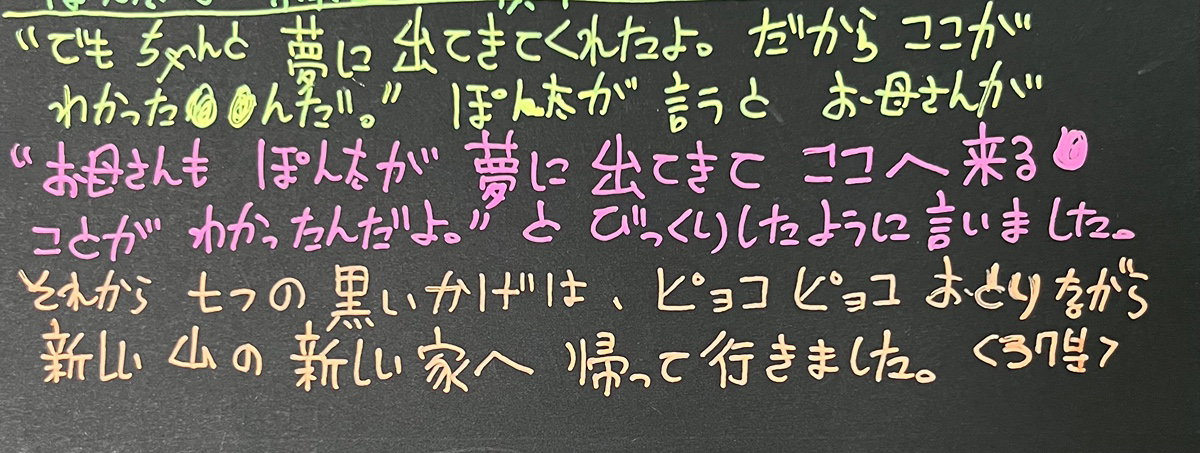 “でも ちゃんと 夢に 出てきてくれたよ。だから ココが
わかったんだ。” ぽん太が 言うと お母さんが
“お母さんも ぽん太が 夢に 出てきて ココへ 来る
ことが わかったんだよ。” と びっくりしたように 言いました。
それから 七つの 黒いかげは、ピョコ ピョコ おどりながら
新しい 山の 新しい 家へ 帰って 行きました。